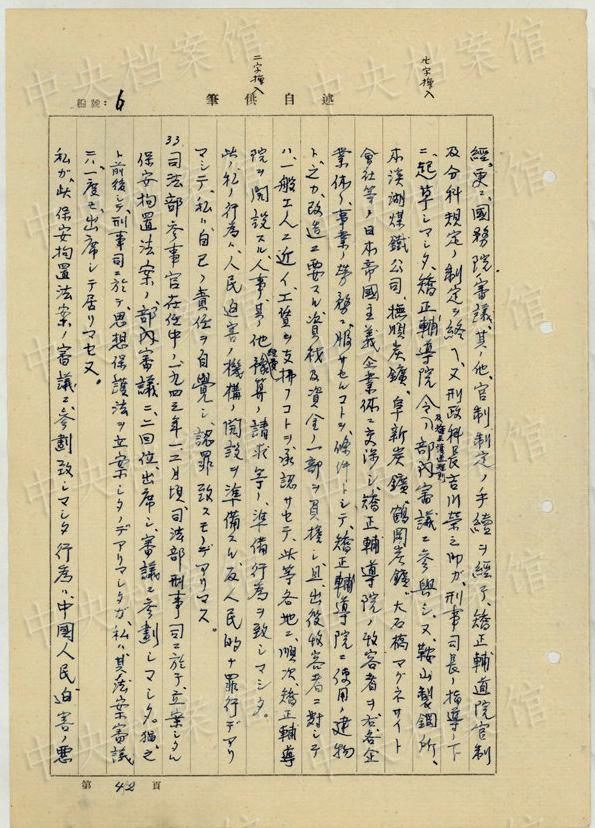 中央档案馆
七字挿入
二字挿入
述自供筆
編號: 6
経、更ニ、国務院ノ審議、其ノ他、官制制定ノ手續ヲ経テ、矯正輔導院官制
及分科規定ノ制定ヲ終ヘ、又刑政科長吉川栄三帥ガ刑事司長ノ指導ノ下
ニ、起草シマシタ、矯正輔導院令ノ部内審議ニ参與シ、又、鞍山製鋼所、
本溪湖煤鐵公司、撫順炭鑛、阜新炭鑛、鶴岡炭鑛、大石橋マグネサイト
会社等ノ日本帝國主義企業体ニ交渉シ、矯正輔導院ノ收容者ヲ右各企
業体ノ事業ノ労務ニ服サセルコトヲ條件トシテ、矯正輔導院ニ使用ノ建物
ト、之カ改造ニ要スル資材及資金ノ一部ヲ負擔シ、且出役收容者ニ對シテ
ハ、一般工人ニ近イ工賃ヲ支拂フコトヲ承認サセテ、此等各地ニ順次、矯正輔導
院ヲ開設スル人事、其ノ他経費豫算ノ請求等ノ準備行為ヲ致シマシタ。
此ノ私ノ行為ハ、人民迫害ノ機構ノ開設ヲ準備スル、反人民的ナ罪行デアリ
マシテ、私ハ自己ノ責任ヲ自覺シ、認罪致スモノデアリマス。
33 司法部参事官在任中ノ一九四三年一二月頃、司法部刑事司ニ於テ立案シタル
保安拘置法案ノ部内審議ニ、二回位出席シ、審議ニ参劃シマシタ。猶之
ト前後シテ、刑事司ニ於テ、思想保護法ヲ立案シタノデアリマシタガ、私ハ其ノ法案審議
ニハ、一度モ出席シテ居リマセヌ。
私ガ、此ノ保安拘置法案ノ審議ニ参劃致シマシタ行為ハ、中國人民ノ迫害ノ悪
第 42 頁